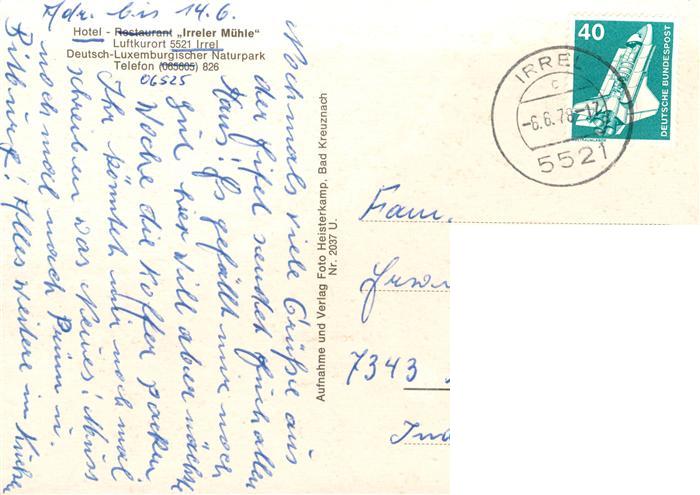 Adr. bis 14.6.
Hotel - Restaurant „Irreler Mühle"
Luftkurort 5521 Irrel
Deutsch-Luxemburgischer Naturpark
Telefon (065605) 826
06525
Nochmals viele Grüße aus
der Eifel sendet Euch allen
Hans! Es gefällt mir noch
gut hier will aber nächste
Woche die Koffer packen
Ihr könntet mir noch mal
schreiben was Neues! Muss
noch mal nach Prüm u.
Bitburg! Alles weitere in
Aufnahme und Verlag Foto Heisterkamp, Bad Kreuznach
Nr. 2037 U.
40
DEUTSCHE BUNDESPOST
IRREL
c
-6.6.78-17
5521
Fam.
Erwi
7343